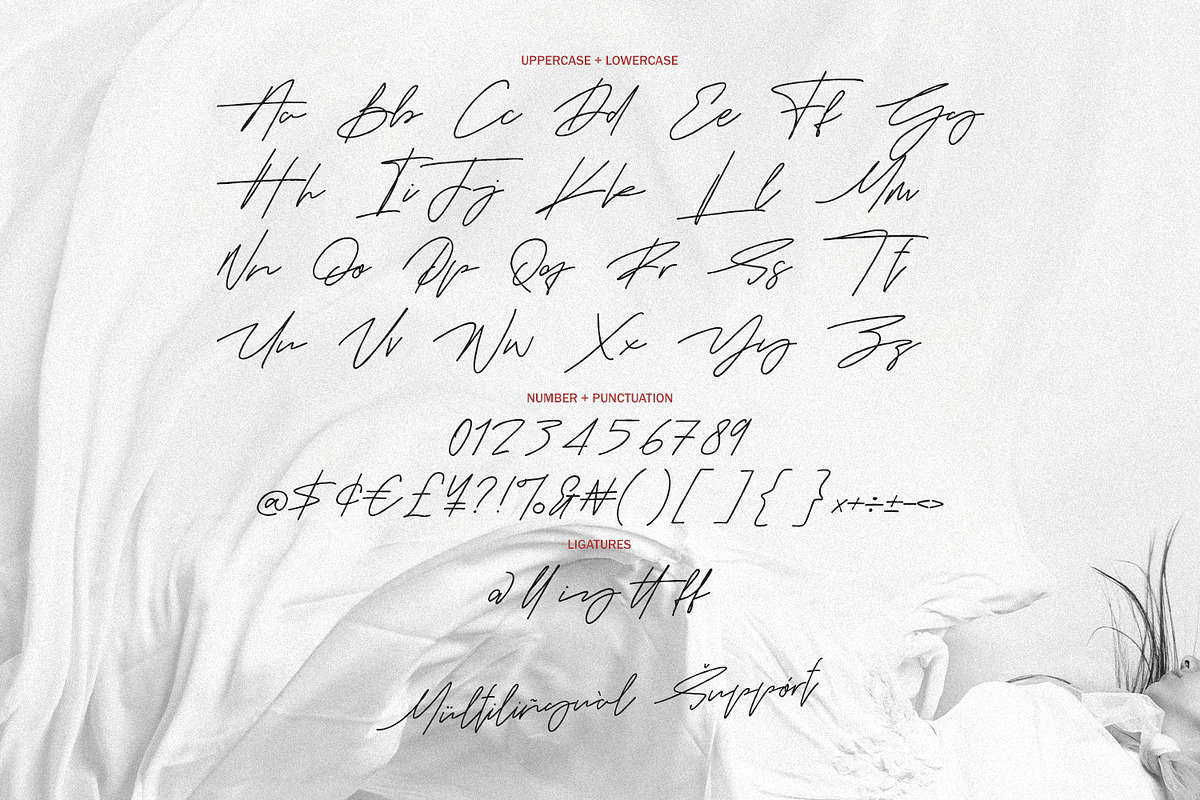 UPPERCASE + LOWERCASE
Aa Bb Cc Dd Ee Ff Gg
Hh Ii Jj Kk Ll Mm
Nn Oo Pp Qq Rr Ss Tt
Uu Vv Ww Xx Yy Zz
NUMBER + PUNCTUATION
0123456789
@$¢€£¥?!%&₦()[]{}×+÷±-<>
LIGATURES
ll ing tt ff
Mültiliñguàl Šuppórt